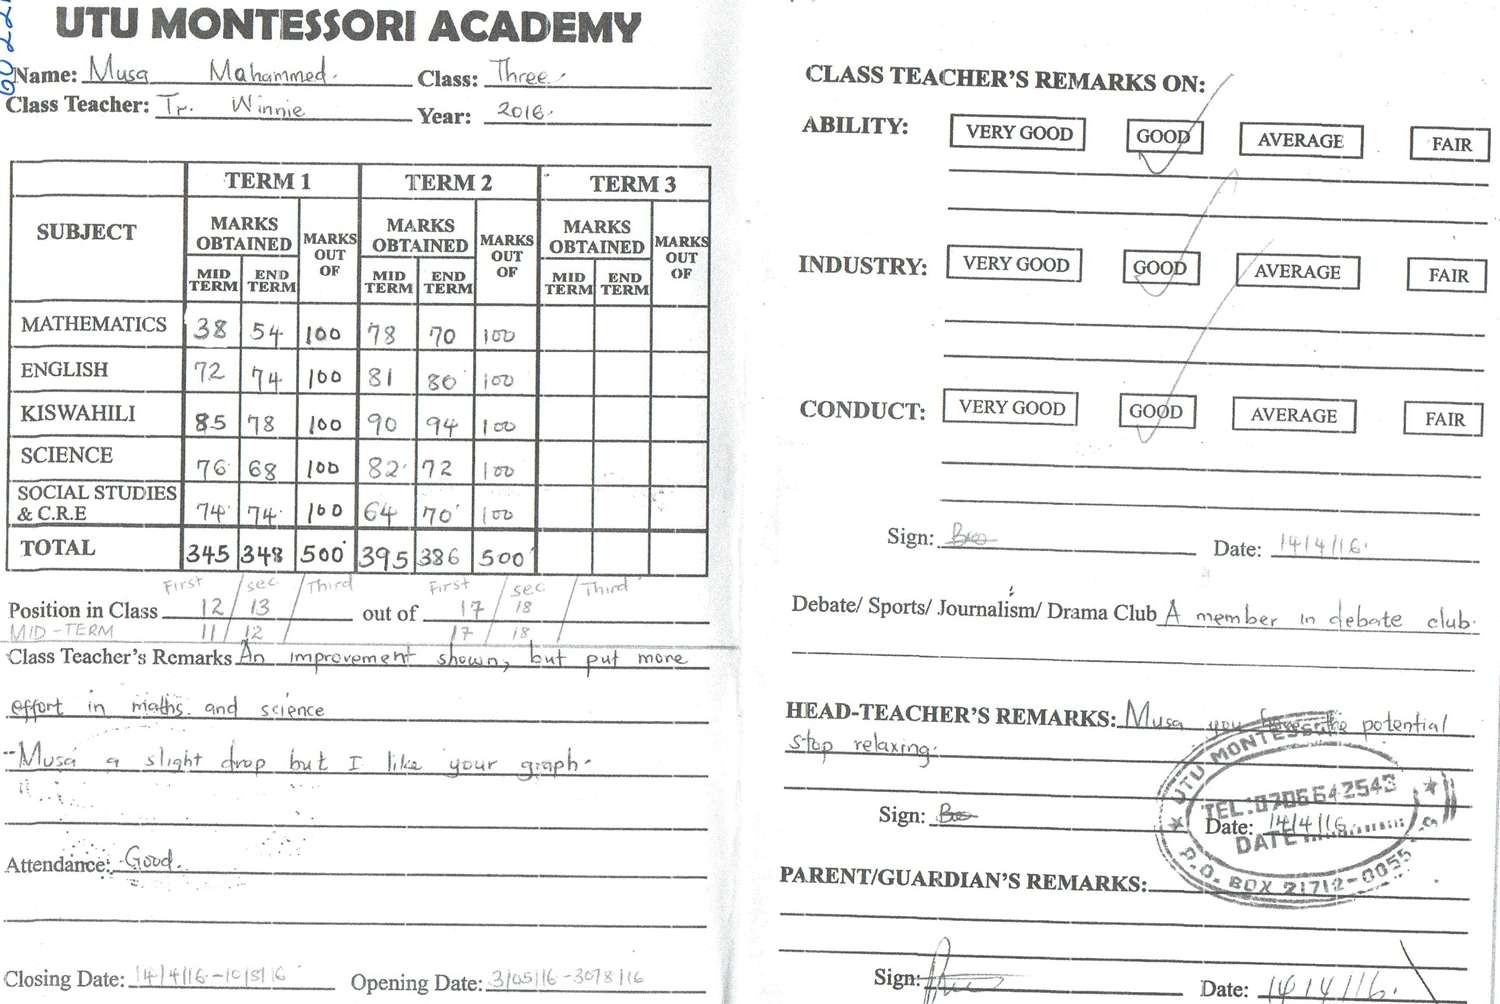 UTU MONTESSORI ACADEMY
Name: Musa Mahammed. Class: Three.
Class Teacher: Tr. Winnie Year: 2016.
TERM 1 TERM 2 TERM 3
SUBJECT MARKS OBTAINED MARKS OUT OF MARKS OBTAINED MARKS OUT OF MARKS OBTAINED MARKS OUT OF
MID TERM END TERM MID TERM END TERM MID TERM END TERM
MATHEMATICS 38 54 100 78 70 100
ENGLISH 72 74 100 81 80 100
KISWAHILI 85 78 100 90 94 100
SCIENCE 76 68 100 82 72 100
SOCIAL STUDIES & C.R.E 74 74 100 64 70 100
TOTAL 345 348 500 395 386 500
First / sec / Third First / sec / Third
Position in Class 12 / 13 / out of 17 / 18 /
MID-TERM 11 / 12 17 / 18
Class Teacher's Remarks An improvement shown, but put more
effort in maths. and science
Musa a slight drop but I like your graph.
Attendance: Good.
Closing Date: 14/4/16.-10/8/16 Opening Date: 3/05/16-30/8/16
CLASS TEACHER'S REMARKS ON:
ABILITY: VERY GOOD GOOD AVERAGE FAIR
INDUSTRY: VERY GOOD GOOD AVERAGE FAIR
CONDUCT: VERY GOOD GOOD AVERAGE FAIR
Sign: Date: 14/4/16.
Debate/ Sports/ Journalism/ Drama Club A member in debate club.
HEAD-TEACHER'S REMARKS: Musa you have the potential
stop relaxing.
Sign: Date: 14/4/16
UTU MONTESSORI
TEL:0706642543
DATE
P.O. BOX 21712-0055
PARENT/GUARDIAN'S REMARKS:
Sign: Date: 14/4/16.